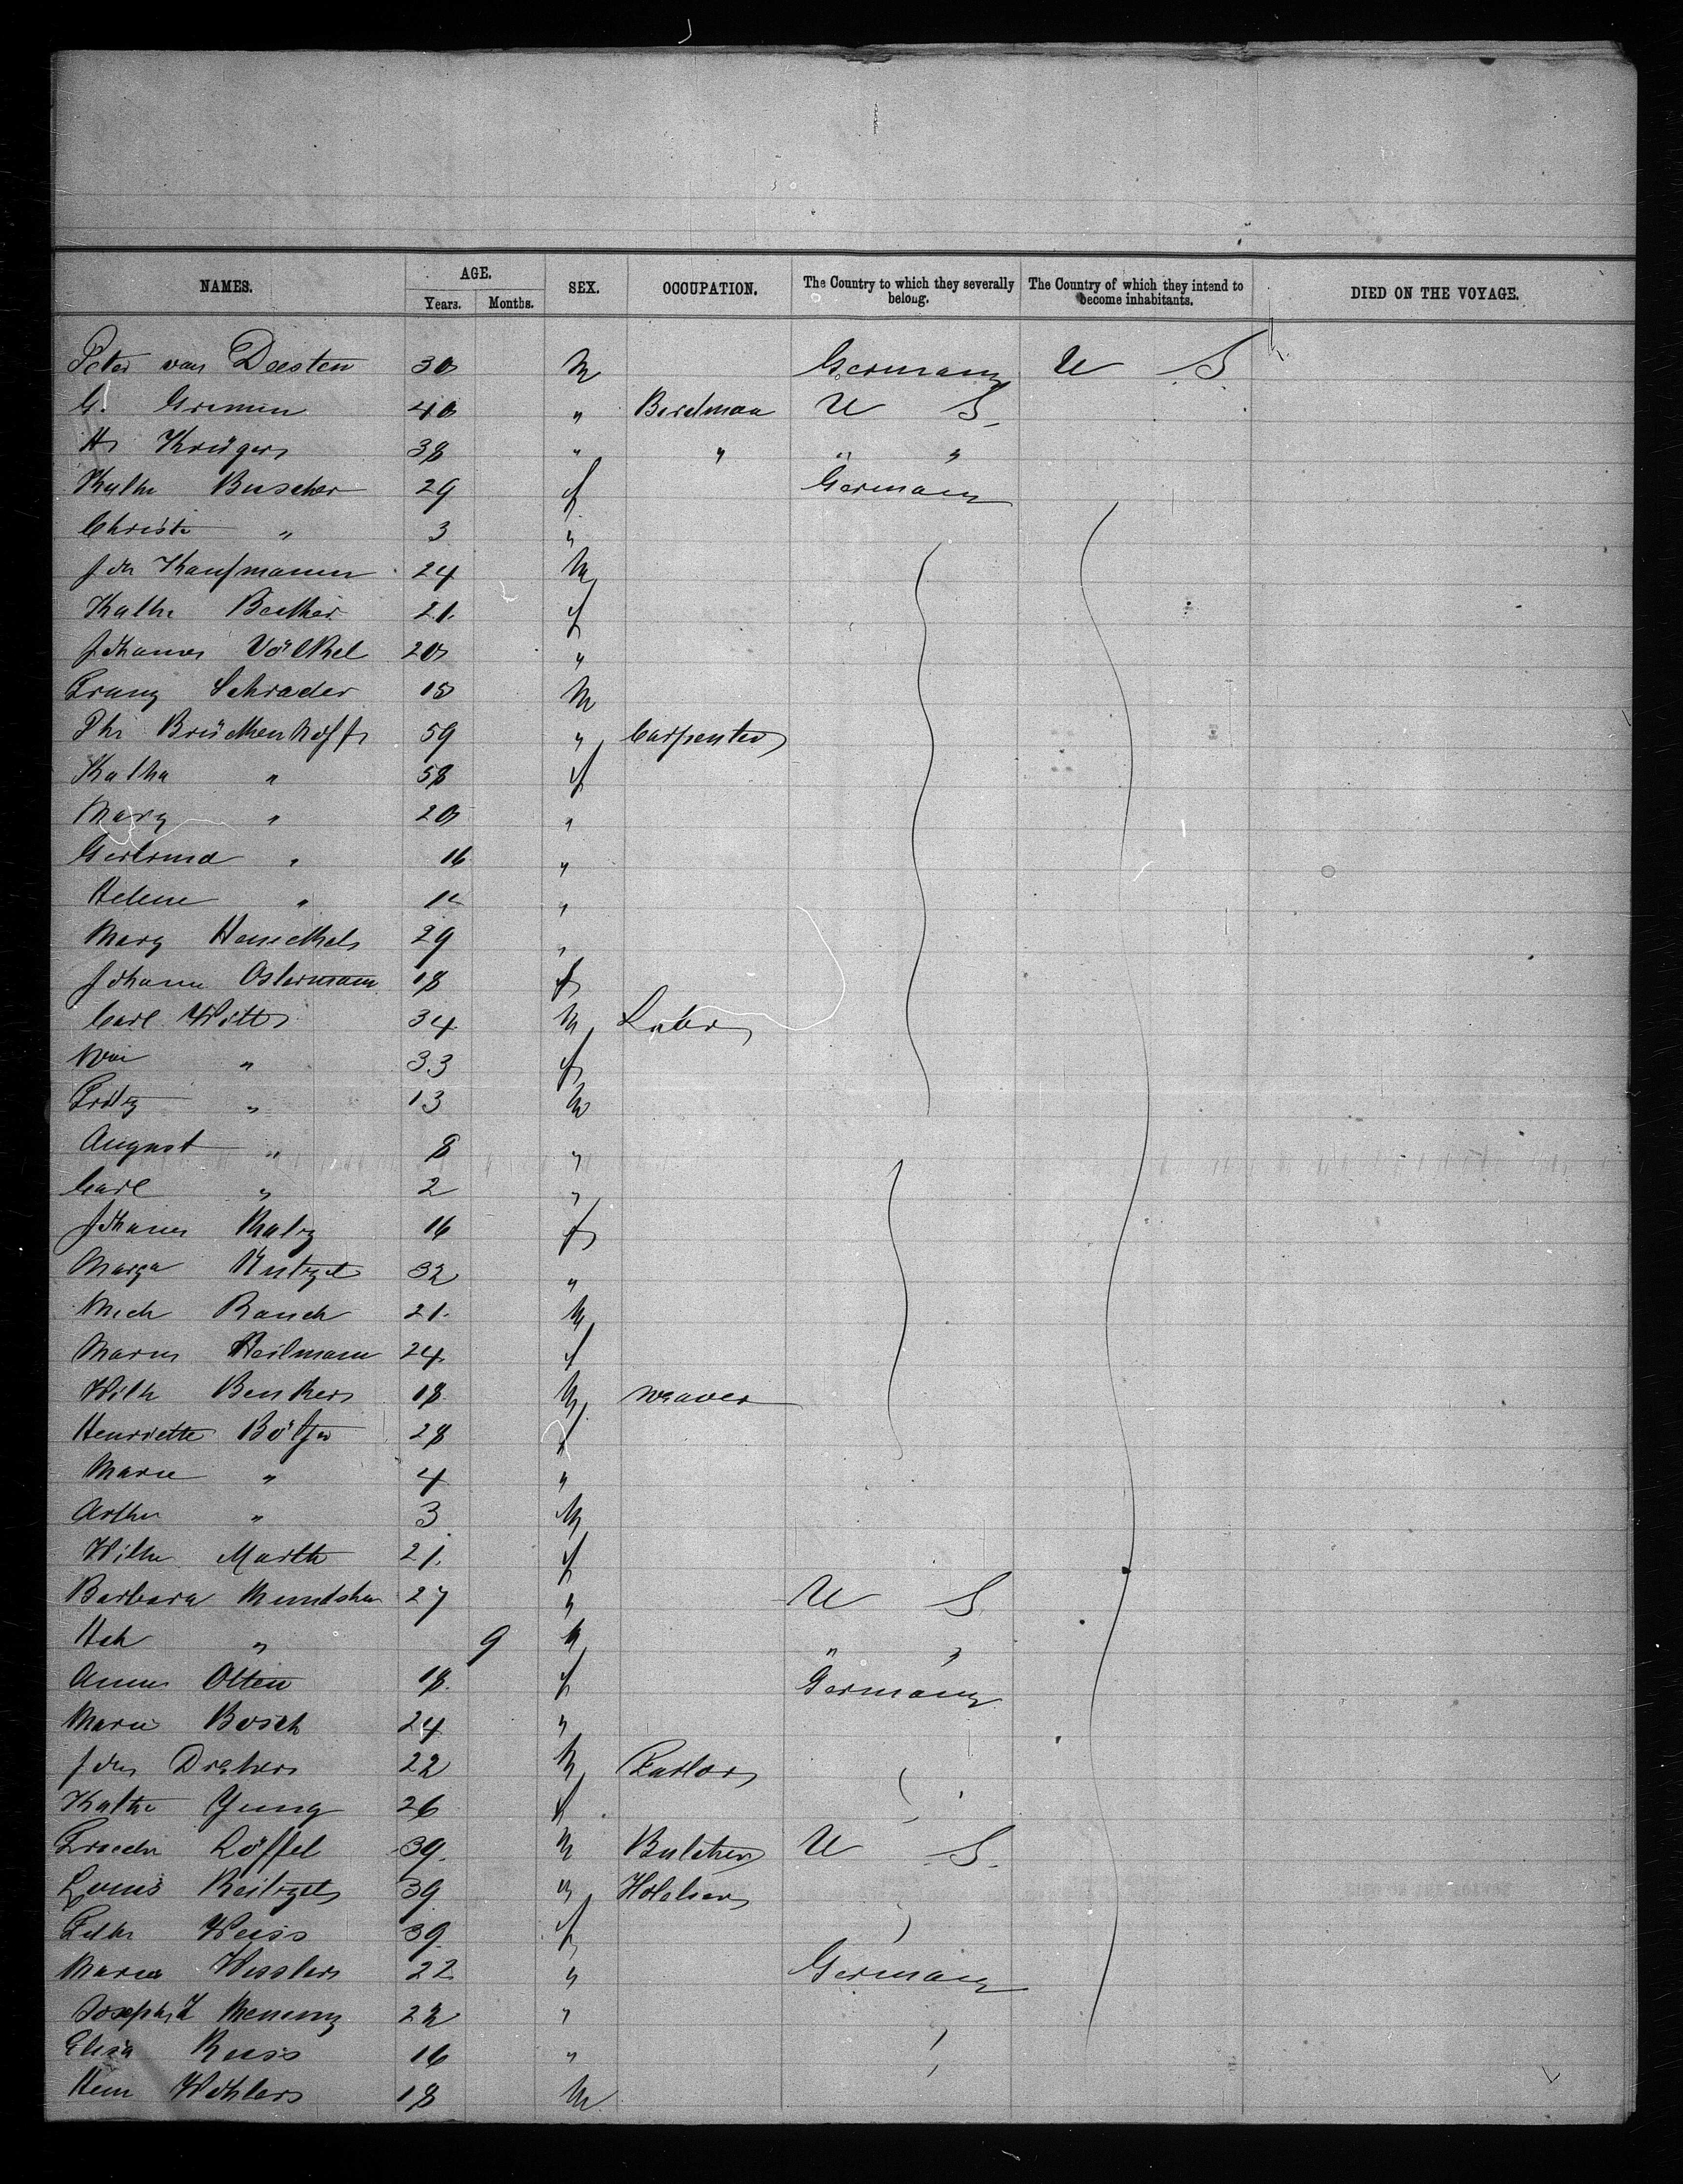 NAMES. AGE. SEX. OCCUPATION. The Country to which they severally belong. The Country of which they intend to become inhabitants. DIED ON THE VOYAGE.
Years. Months.
Peter van Deesten 30 M Germany U S
G. Gremen 40 " Birdman U S
H Krüger 38 " " " "
Kathe Buscher 29 f Germany
Christe " 3 "
Joh Kaufmann 24 M
Kathe Becker 21 f
Johannes Völkel 20 "
Franz Schrader 15 M
Phi Brückenhoff 59 " Carpenter
Katha " 58 f
Mary " 20 "
Gertrud " 16 "
Helene " "
Mary 29 "
Johann Ostermann 18 f
Carl Witt 34 M Labor
" 33 f
Fritz " 13 M
August " 8 "
Carl " 2 "
Johann Maltz 16 f
Marga 32 "
Mich Rauch 21 M
Marie Heilmann 24 f
Wilh Benker 18 M weaver
Henriette Bölger 28 f
Marie " 4 "
Arthur " 3 M
Wilhe Marth 21 f
Barbara 27 " U S
" 9 M " "
Anna Otten 18 f Germany
Marie Bosch 24 "
Joh Dreher 22 M
Kathe Jung 26 f
Löffel 39 M Butcher U S
Louis Reitzel 39 "
Weiss 39 f
Maria Wessler 22 " Germany
22 "
Elisa Reiss 16 "
Hein Wohlers 18 M